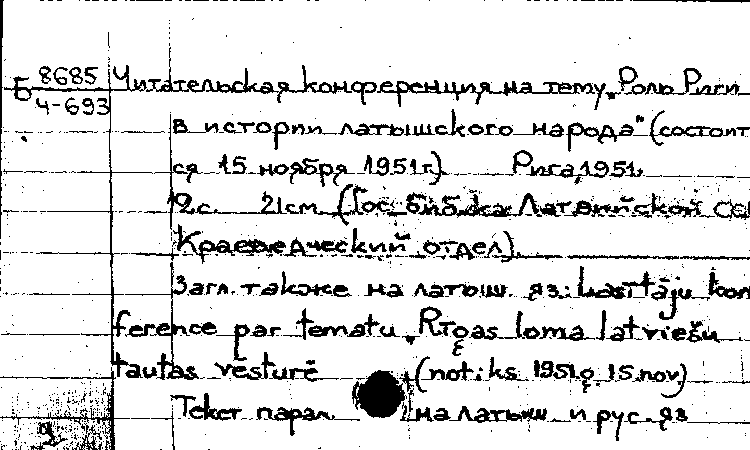 Б 8685 Читательская конференция на тему „Роль Риги
4-693
в истории латышского народа" (состоит
ся 15 ноября 1951г.) Рига, 1951.
12с. 21см (Гос. биб-ка Латвийской ССР
Краеведческий отдел).
Загл. также на латыш. яз.: Lasītāju kon
ference par tematu „Rīgas loma latviešu
tautas vēsturē (notiks 1951.g. 15.nov.)
Текст парал. на латыш и рус. яз